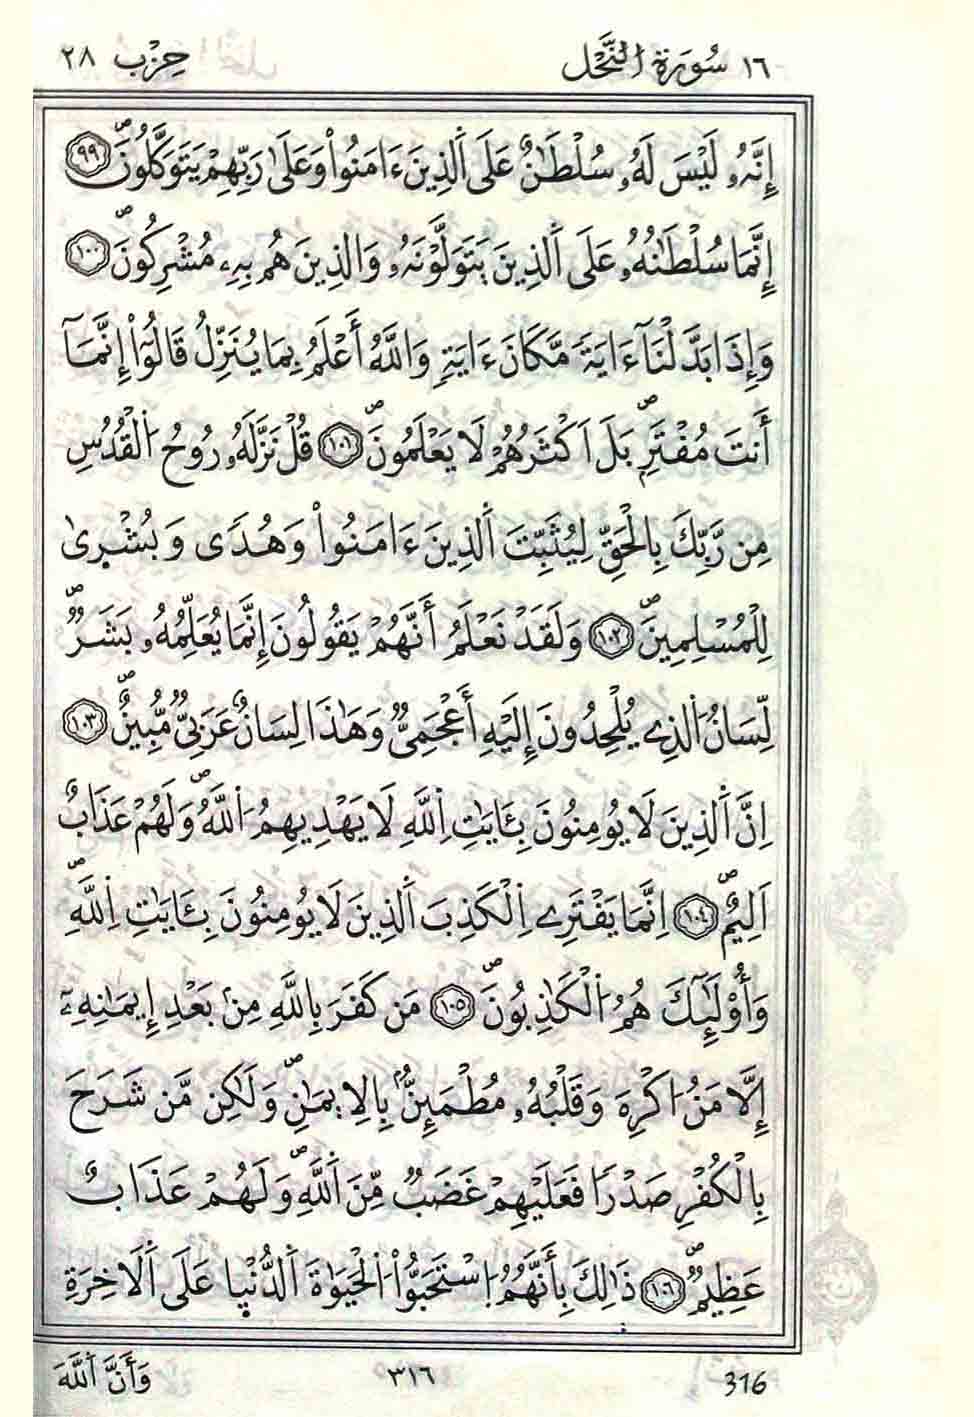 ١٦ سُورَةُ النَّحْلِ حِزْبُ ٢٨
إِنَّهُۥ لَيْسَ لَهُۥ سُلْطَٰنٌ عَلَى اَ۬لذِينَ ءَامَنُواْ وَعَلَىٰ رَبِّهِمْ يَتَوَكَّلُونَۖ ٩٩
إِنَّمَا سُلْطَٰنُهُۥ عَلَى اَ۬لذِينَ يَتَوَلَّوْنَهُۥ وَالذِينَ هُم بِهِۦ مُشْرِكُونَۖ ١٠٠
وَإِذَا بَدَّلْنَآ ءَايَةٗ مَّكَانَ ءَايَةٖ وَاللَّهُ أَعْلَمُ بِمَا يُنَزِّلُ قَالُوٓاْ إِنَّمَآ
أَنتَ مُفْتَرِۢۖ بَلَ اَكْثَرُهُمْ لَا يَعْلَمُونَۖ ١٠١ قُلْ نَزَّلَهُۥ رُوحُ اُ۬لْقُدُسِ
مِن رَّبِّكَ بِالْحَقِّ لِيُثَبِّتَ اَ۬لذِينَ ءَامَنُواْ وَهُدٗى وَبُشْر۪ىٰ
لِلْمُسْلِمِينَۖ ١٠٢ وَلَقَدْ نَعْلَمُ أَنَّهُمْ يَقُولُونَ إِنَّمَا يُعَلِّمُهُۥ بَشَرٞۖ
لِّسَانُ اُ۬لذِے يُلْحِدُونَ إِلَيْهِ أَعْجَمِيّٞ وَهَٰذَا لِسَانٌ عَرَبِيّٞ مُّبِينٌۖ ١٠٣
اِنَّ اَ۬لذِينَ لَا يُومِنُونَ بِـَٔايَٰتِ اِ۬للَّهِ لَا يَهْدِيهِمُ اُ۬للَّهُۖ وَلَهُمْ عَذَابٌ
اَلِيمٌۖ ١٠٤ اِنَّمَا يَفْتَرِے اِ۬لْكَذِبَ اَ۬لذِينَ لَا يُومِنُونَ بِـَٔايَٰتِ اِ۬للَّهِۖ
وَأُوْلَٰٓئِكَ هُمُ اُ۬لْكَٰذِبُونَۖ ١٠٥ مَن كَفَرَ بِاللَّهِ مِنۢ بَعْدِ إِيمَٰنِهِۦٓ
إِلَّا مَنُ ا۟كْرِهَ وَقَلْبُهُۥ مُطْمَئِنُّۢ بِالِايمَٰنِۖ وَلَٰكِن مَّن شَرَحَ
بِالْكُفْرِ صَدْرٗا فَعَلَيْهِمْ غَضَبٞ مِّنَ اَ۬للَّهِۖ وَلَهُمْ عَذَابٌ
عَظِيمٞۖ ١٠٦ ذَٰلِكَ بِأَنَّهُمُ اُ۪سْتَحَبُّواْ اُ۬لْحَيَوٰةَ اَ۬لدُّنْي۪ا عَلَى اَ۬لَاخِرَةِ
وَأَنَّ اَ۬للَّهَ ٣١٦ 316